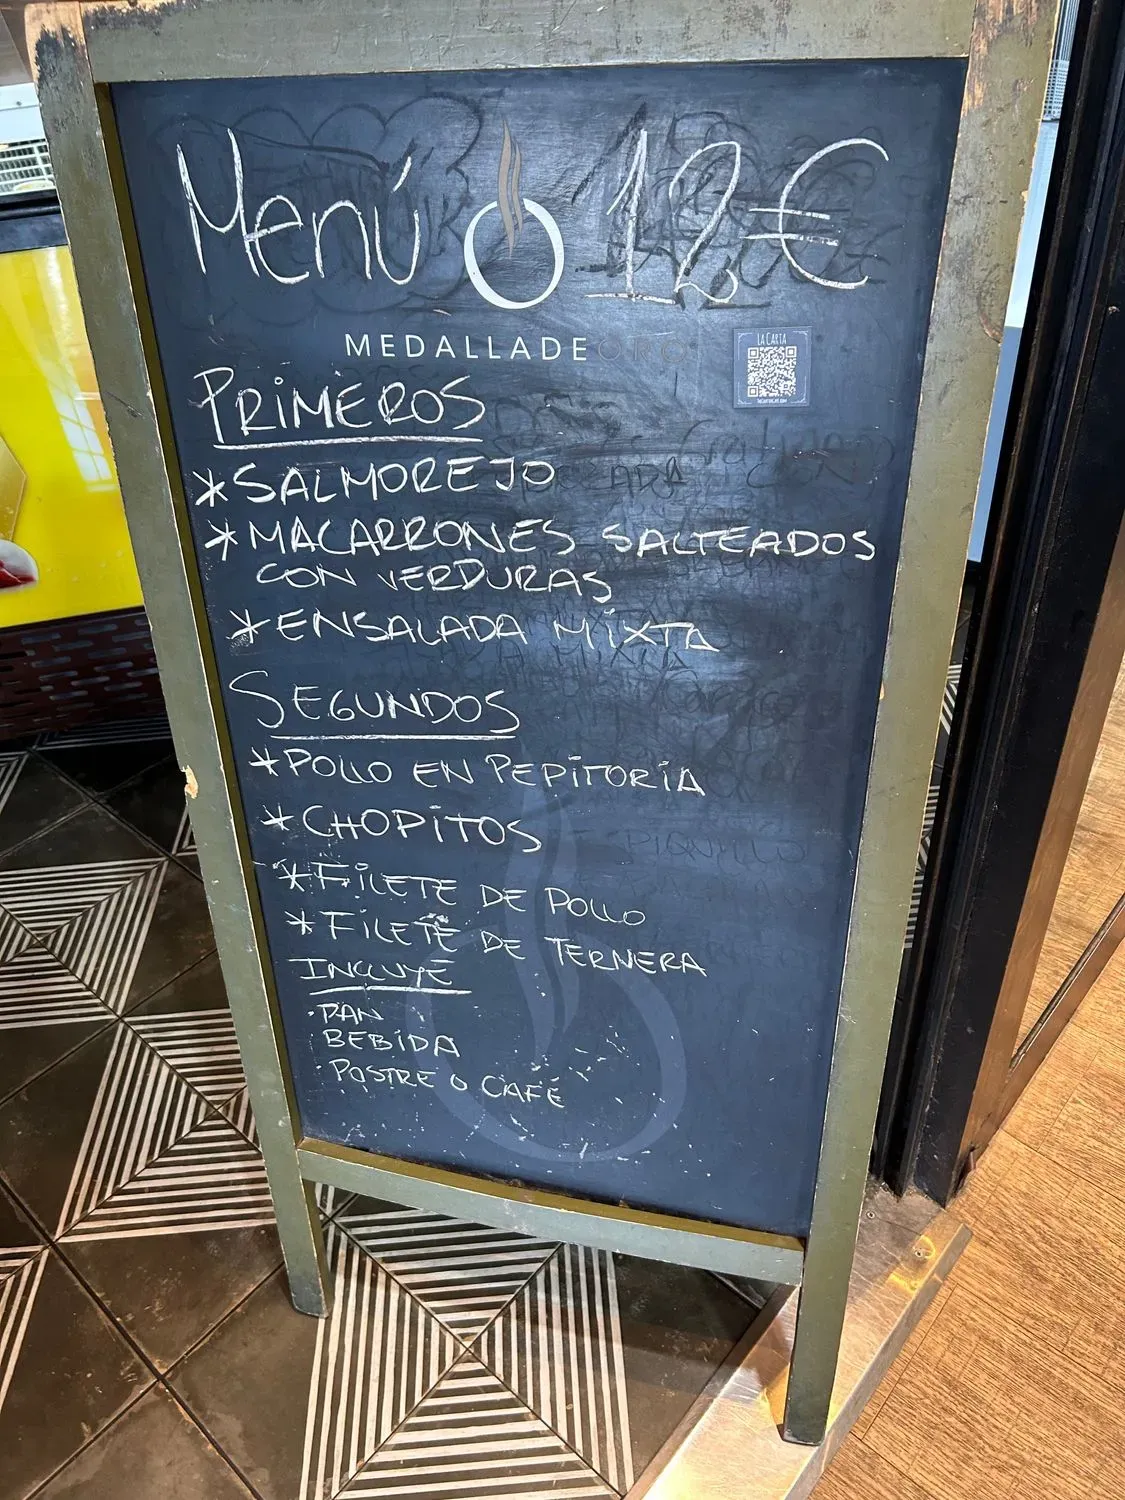 Menú 12€
MEDALLADEORO
LA CARTA
PRIMEROS
*SALMOREJO
*MACARRONES SALTEADOS
CON VERDURAS
*ENSALADA MIXTA
SEGUNDOS
*POLLO EN PEPITORIA
*CHOPITOS
*FILETE DE POLLO
*FILETE DE TERNERA
INCLUYE
·PAN
BEBIDA
·POSTRE O CAFÉ